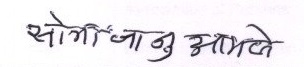 सोमी जानु आमले